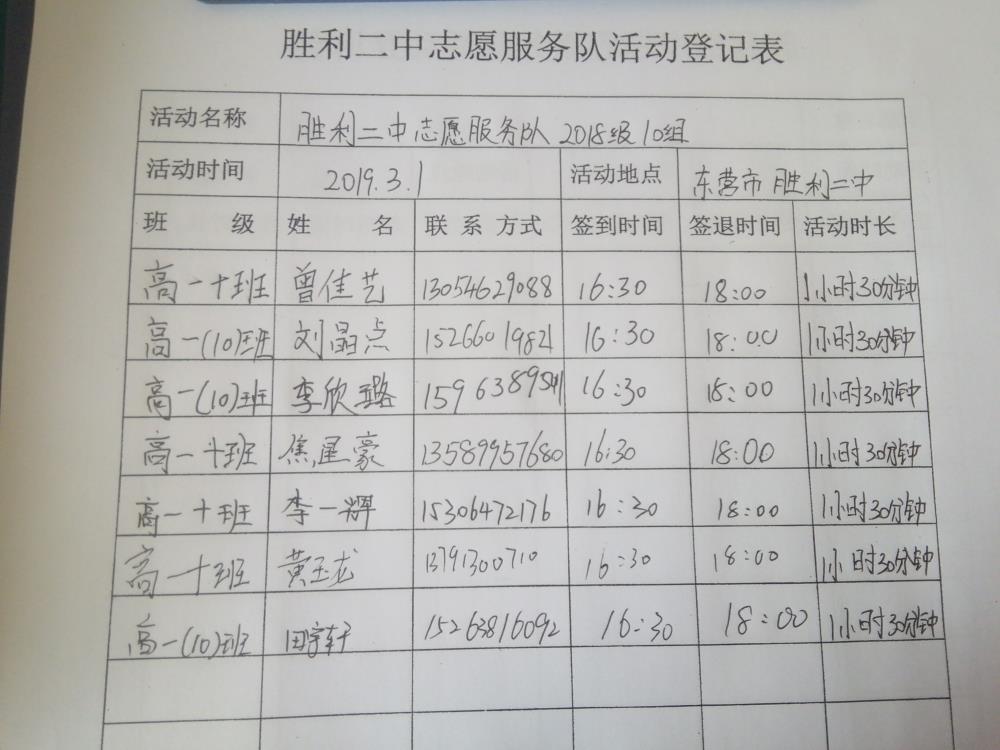 胜利二中志愿服务队活动登记表
活动名称 胜利二中志愿服务队 2018级10组
活动时间 2019.3.1 活动地点 东营市胜利二中
班 级 姓 名 联系方式 签到时间 签退时间 活动时长
高一十班 曾佳艺 13054629088 16:30 18:00 1小时30分钟
高一(10)班 刘晶点 15266019821 16:30 18:00 1小时30分钟
高一(10)班 李欣璐 15963895411 16:30 18:00 1小时30分钟
高一十班 焦星豪 13589957680 16:30 18:00 1小时30分钟
高一十班 李一辉 15306472176 16:30 18:00 1小时30分钟
高一十班 黄玉龙 13791300710 16:30 18:00 1小时30分钟
高一(10)班 田宇轩 15263816092 16:30 18:00 1小时30分钟